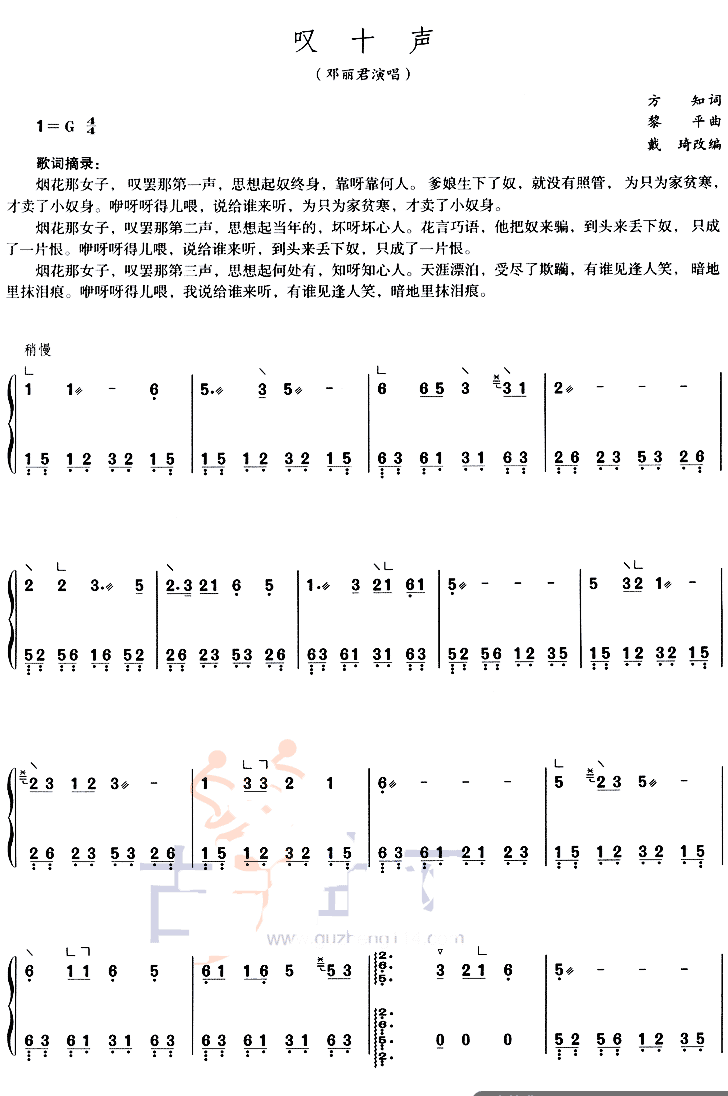 叹 十 声
（邓丽君演唱）
方 知词
1＝G 4/4
黎 平曲
戴 琦改编
歌词摘录：
烟花那女子， 叹罢那第一声，思想起奴终身，靠呀靠何人。 爹娘生下了奴，就没有照管， 为只为家贫寒，
才卖了小奴身。咿呀呀得儿喂，说给谁来听，为只为家贫寒，才卖了小奴身。
烟花那女子，叹罢那第二声，思想起当年的，坏呀坏心人。花言巧语，他把奴来骗，到头来丢下奴， 只成
了一片恨。咿呀呀得儿喂，说给谁来听，到头来丢下奴，只成了一片恨。
烟花那女子，叹罢那第三声，思想起何处有，知呀知心人。天涯漂泊，受尽了欺蹦，有谁见逢人笑， 暗地
里抹泪痕。咿呀呀得儿喂，我说给谁来听，有谁见逢人笑，暗地里抹泪痕。
稍慢
1 1 - 6 | 5. 3 5 - | 6 65 3 31 | 2 - - -
15 12 32 15 | 15 12 32 15 | 63 61 31 63 | 26 23 53 26
2 2 3. 5 | 2.3 21 6 5 | 1. 3 21 61 | 5 - - - | 5 32 1 -
52 56 16 52 | 26 23 53 26 | 63 61 31 63 | 52 56 12 35 | 15 12 32 15
23 12 3 - | 1 33 2 1 | 6 - - - | 5 23 5 -
26 23 53 26 | 15 12 32 15 | 63 61 21 23 | 15 12 32 15
6 11 6 5 | 61 16 5 53 | 2 6 5 3 21 6 | 5 - - -
63 61 31 63 | 63 61 31 63 | 2 6 5 2 0 0 0 | 52 56 12 56